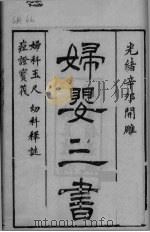 光緒辛卯開雕
婦嬰三書
婦科玉尺 幼科釋謎
痘證寶筏